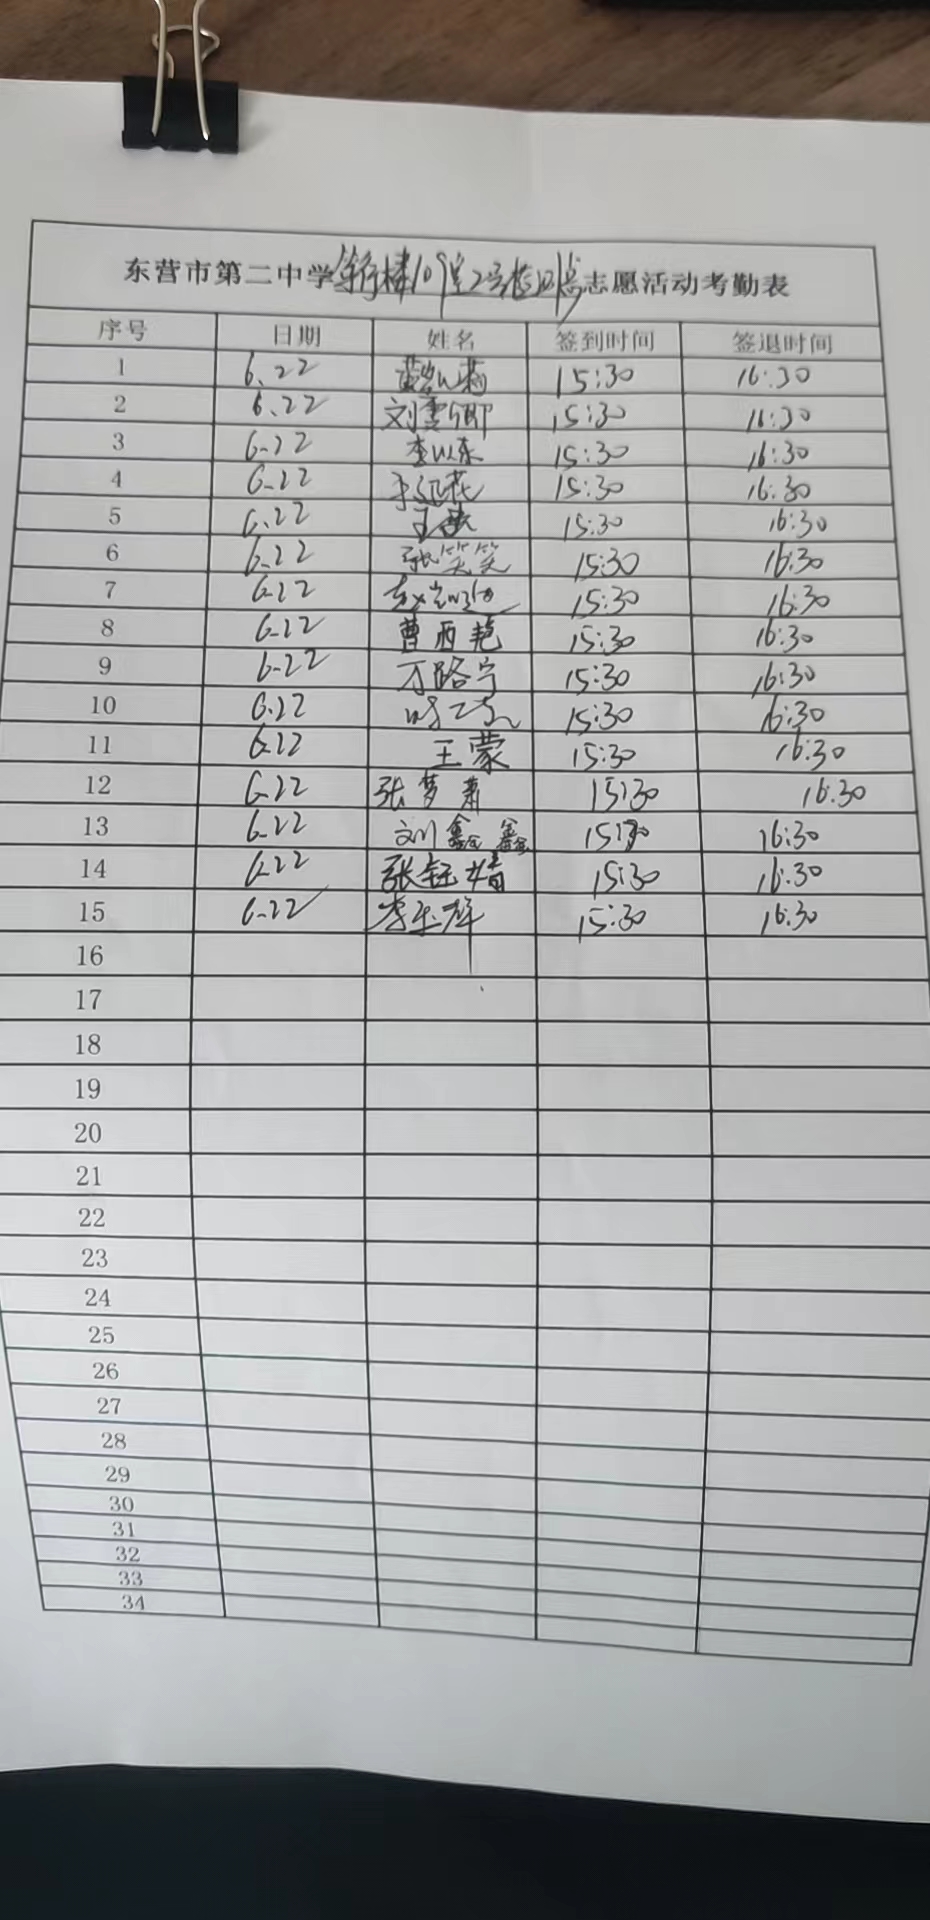 东营市第二中学 志愿活动考勤表
序号 日期 姓名 签到时间 签退时间
1 6.22 15:30 16:30
2 6.22 刘雯卿 15:30 16:30
3 6.22 李以东 15:30 16:30
4 6.22 15:30 16:30
5 6.22 15:30 16:30
6 6.22 张笑笑 15:30 16:30
7 6.22 15:30 16:30
8 6.22 曹西艳 15:30 16:30
9 6.22 万路宁 15:30 16:30
10 6.22 15:30 16:30
11 6.22 王蒙 15:30 16:30
12 6.22 张梦萧 15:30 16:30
13 6.22 刘鑫鑫 15:30 16:30
14 6.22 张钰婧 15:30 16:30
15 6.22 15:30 16:30
16
17
18
19
20
21
22
23
24
25
26
27
28
29
30
31
32
33
34